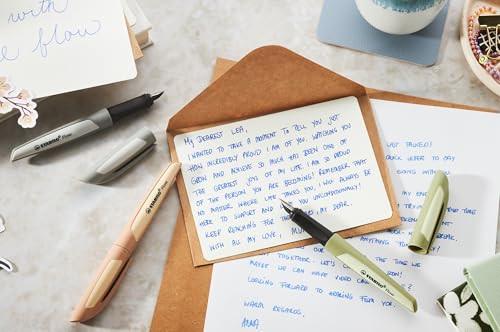 with
flow
STABILO Flow
My DEAREST LEA,
I WANTED TO TAKE A MOMENT TO TELL YOU JUST
HOW INCREDIBLY PROUD I AM OF YOU. WATCHING YOU
GROW AND ACHIEVE SO MUCH HAS BEEN ONE OF
THE GREATEST JOYS OF MY LIFE. I AM SO PROUD
OF THE PERSON YOU ARE BECOMING! REMEMBER THAT
NO MATTER WHERE LIFE TAKES YOU, I WILL ALWAYS BE
HERE TO SUPPORT AND YOU UNCONDITIONALLY!
KEEP REACHING FOR THE MY DEAR.
WITH ALL MY LOVE, MUM
STABILO
STABILO
JUST TALKED!
QUICK LETTER TO SAY
GOING WITH
MY
TIME
ANYTHING
TOGETHER. LET'S THE TIME WE
MAYBE WE CAN HAVE VIDEO CALL SOON!
LOOKING FORWARD TO HEARING FROM YOU,
WARM REGARDS,
ANNA